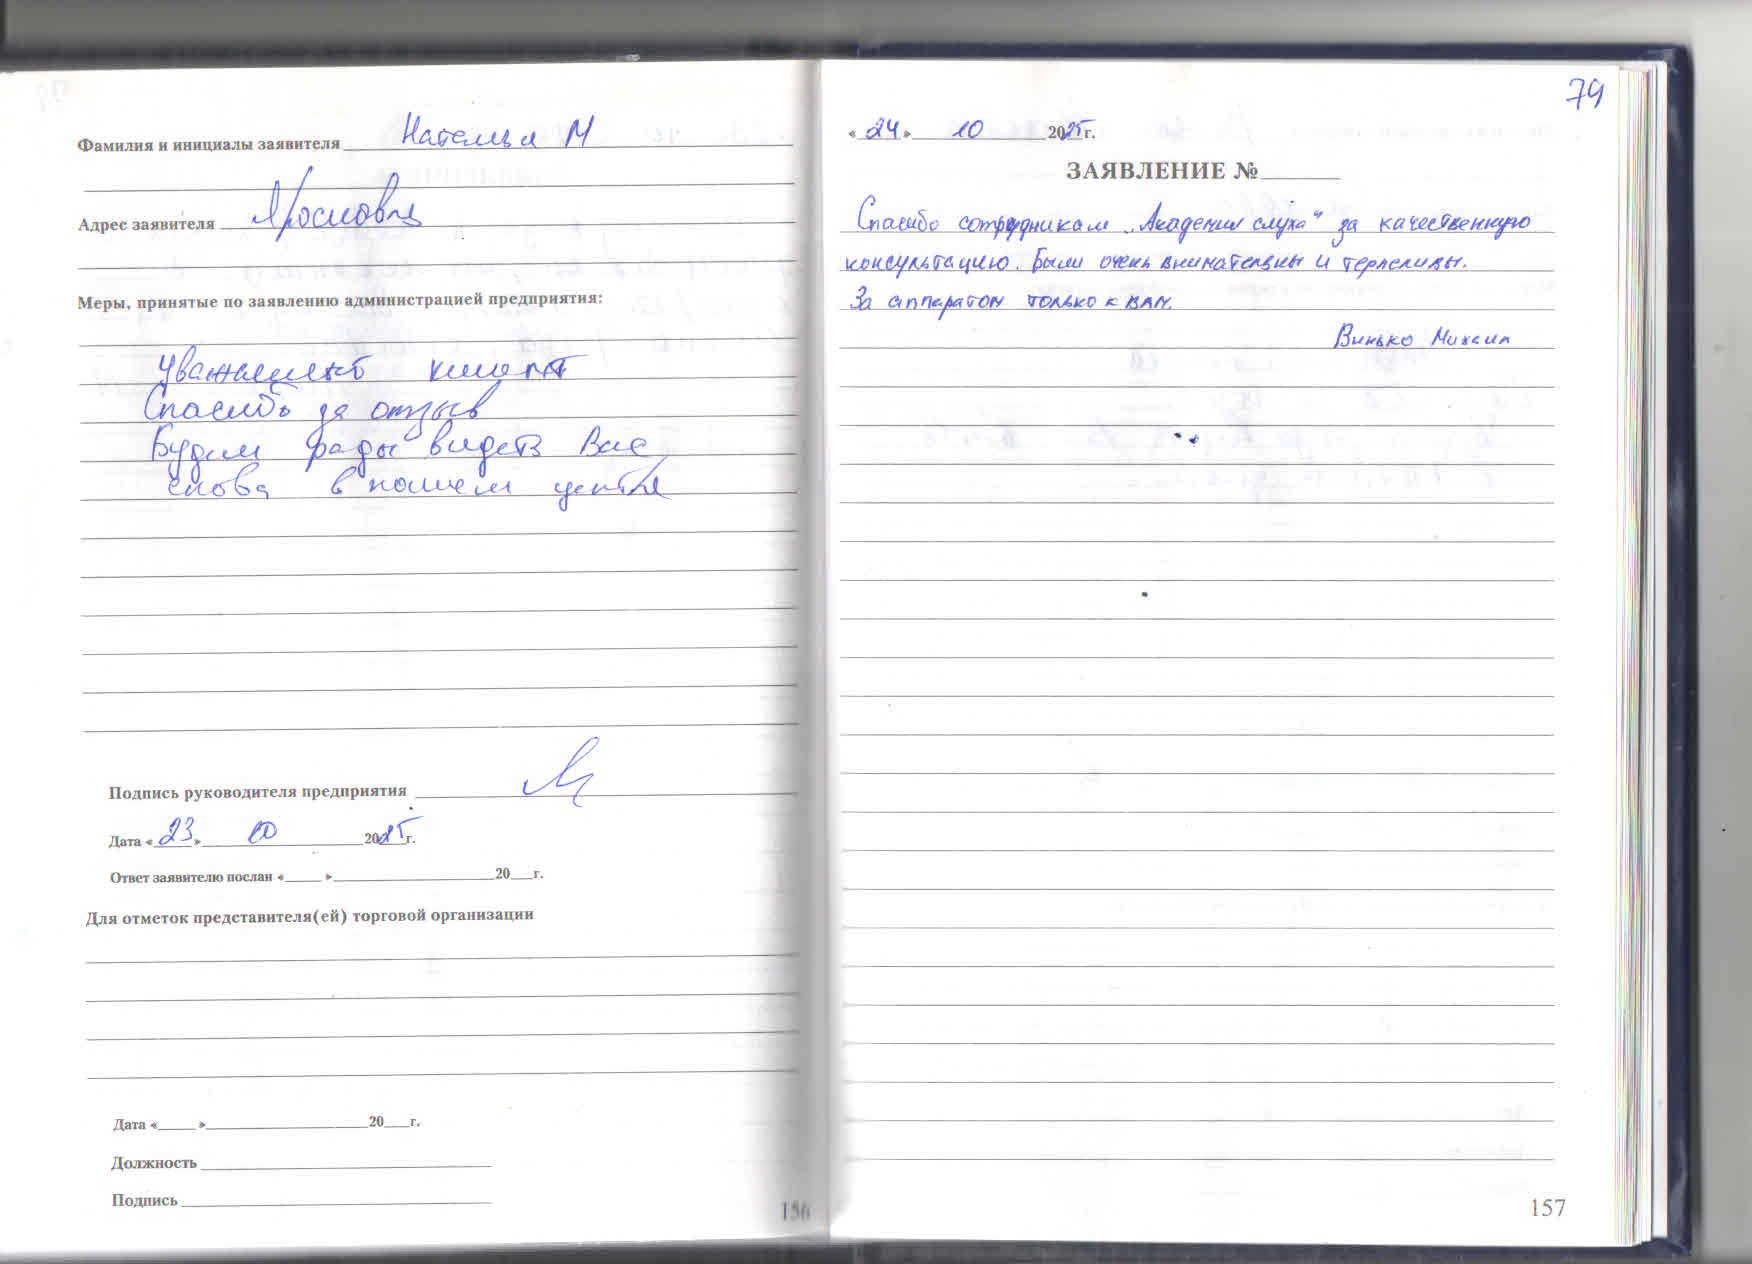 Фамилия и инициалы заявителя Наталья М
Адрес заявителя
Меры, принятые по заявлению администрацией предприятия:
Уважаемый клиент
Спасибо за отзыв
Будем рады видеть Вас
снова в нашем центре
Подпись руководителя предприятия
Дата « 23 » 10 2025 г.
Ответ заявителю послан «____» ____ 20__г.
Для отметок представителя(ей) торговой организации
Дата «____» ____ 20__г.
Должность
Подпись
156
79
« 24 » 10 2025 г.
ЗАЯВЛЕНИЕ №
Спасибо сотрудникам „Академии слуха" за качественную
консультацию. Были очень внимательны и терпеливы.
За аппаратом только к вам.
Винько Михаил
157